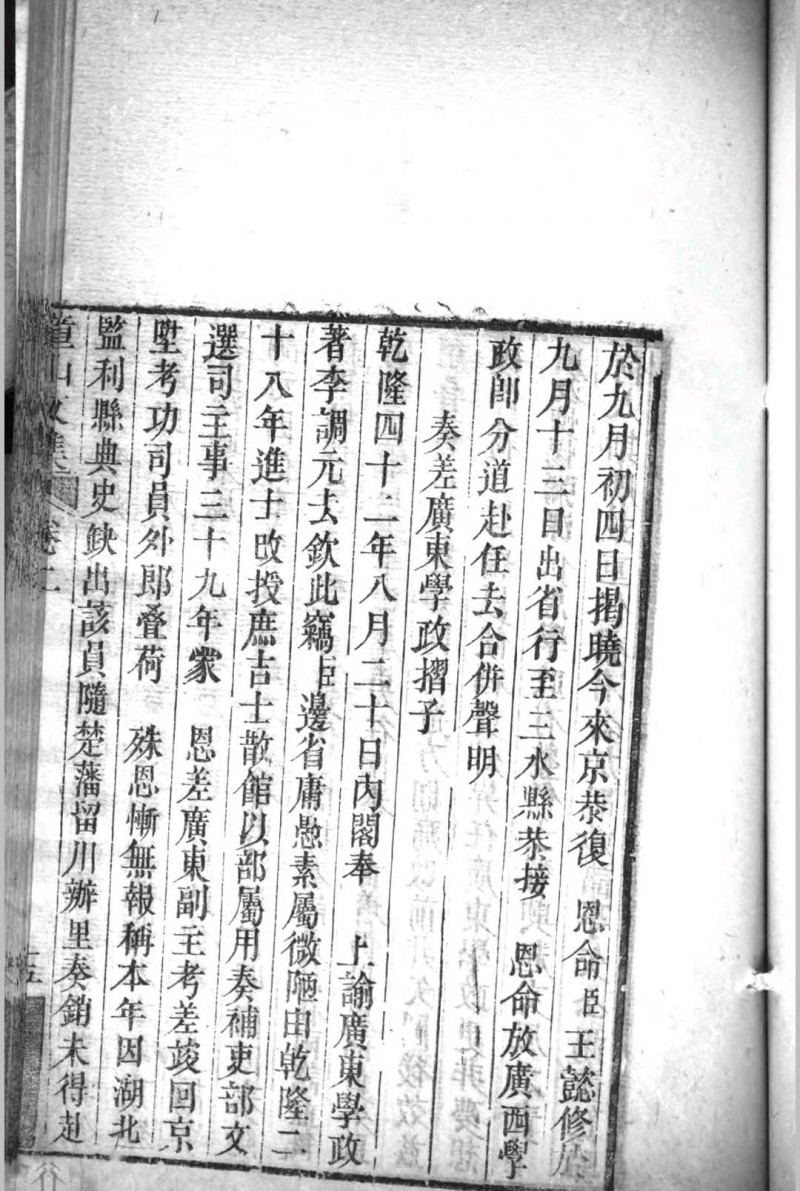 於九月初四日揭曉今來京恭復 恩命臣王懿修於
九月十三日出省行至三水縣恭接 恩命放廣西學
政卽分道赴任去合併聲明
奏差廣東學政摺子
乾隆四十二年八月二十日內閣奉 上諭廣東學政
著李調元去欽此竊臣邊省庸愚素屬微陋由乾隆二
十八年進士改授庶吉士散館以部屬用奏補吏部文
選司主事三十九年蒙 恩差廣東副主考差竣回京
陞考功司員外郎叠荷 殊恩慚無報稱本年因湖北
監利縣典史缺出該員隨楚藩留川辦里奏銷未得赴
童山文集 卷二